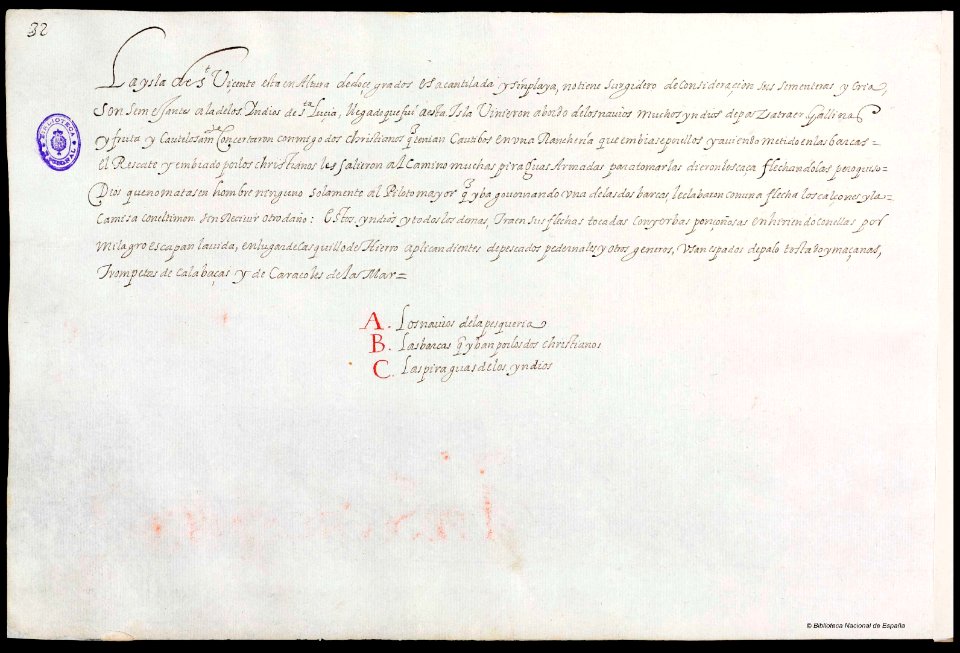 32
La ysla de St Vicente esta en Altura de doçe grados es acantilada y sin playa, no tiene surgidero de consideraçion sus sementeras, y cria
son semejantes a la de los Yndios de sta Lucia, llegado que fui a esta Isla Vinieron abordo de los navios muchos yndios de paz a traer Gallinas
y fruta y Cautelosamte Conçertaron conmigo dos christianos q tenian Cautibos en una Rancheria que embiase por ellos y auiendo metido en las barcas =
el Rescate y embiado por los christianos les salieron al Camino muchas piraguas Armadas para tomarlas dieron les caça flechandolas pero quiso =
Dios que no matasen hombre ninguno solamente al Piloto mayor q yba gouernando una de las dos barcas, le clabaron con una flecha los calçones y la =
Camisa con el timon sin Recivir otro daño: Estos, yndios, y todos los demas, Traen sus flechas tocadas con yerbas ponçoñosas en hiriendo con ellas por
milagro escapan la uida, en lugar de Casquillo de Hierro aplican dientes de pescados pedernales y otros generos, Usan espadas de palo tostado y maçanas,
Trompetas de calabaças y de Caracoles de la Mar =
A. Los nauios de la pesqueria
B. Las barcas q yban por los dos christianos
C. Las piraguas de los yndios
BIBLIOTECA NACIONAL
© Biblioteca Nacional de España